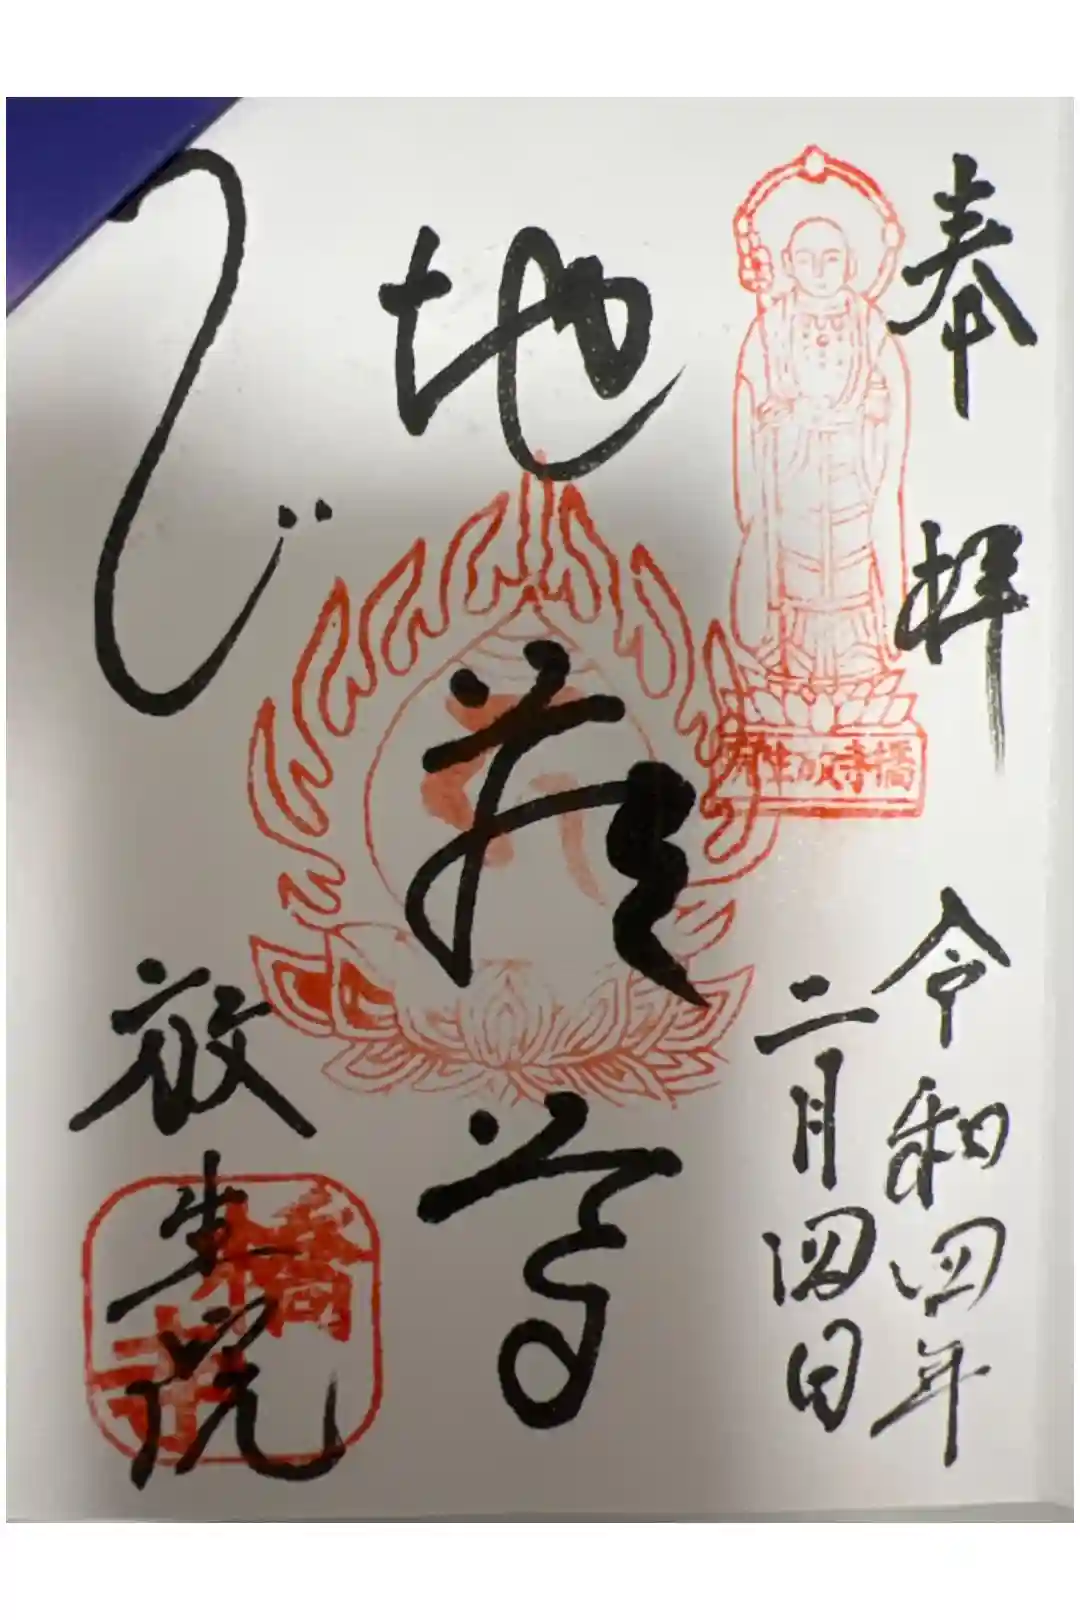 奉拝
令和四年
二月四日
橋寺放生院
地蔵尊
放生院
橋寺